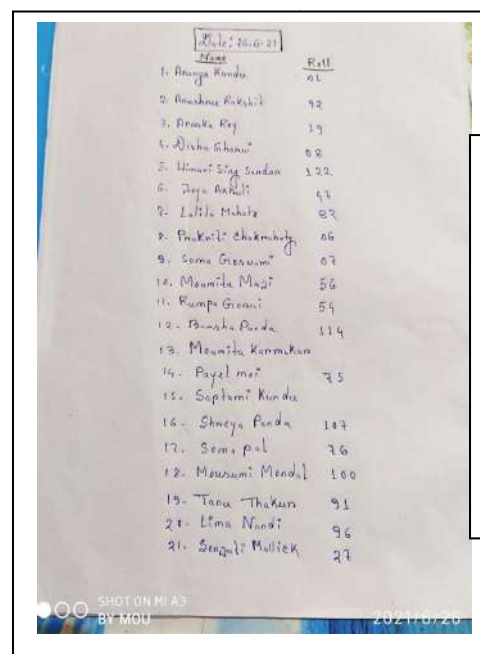 Date: 26-6-21
Name Roll
1. Ananya Kundu 01
2. Anushree Rakshit 92
3. Anuska Roy 19
4. Disha Ghorui 08
5. Himani Sing Sundan 122
6. Joya Ankuli 47
7. Lalita Mahato 82
8. Prakriti Chakraborty 06
9. Soma Goswami 07
10. Moumita Maji 56
11. Rumpa Gorai 54
12. Barsha Panda 114
13. Moumita Karmakar
14. Payel mei 75
15. Saptami Kundu
16. Shreya Panda 107
17. Soma pal 76
18. Mousumi Mondal 100
19. Tanu Thakur 91
20. Lima Nandi 96
21. Mallick 27
SHOT ON MI A3
BY MOU
2021/6/26